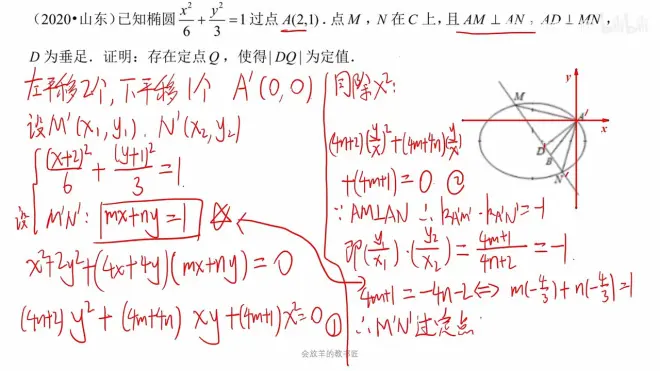 (2020•山东)已知椭圆x²/6+y²/3=1过点A(2,1)．点M，N在C上，且AM⊥AN，AD⊥MN，
D为垂足．证明：存在定点Q，使得|DQ|为定值．
左平移2个，下平移1个 A'(0,0)
设M'(x₁,y₁)．N'(x₂,y₂)
设{(x+2)²/6+(y+1)²/3=1
M'N': mx+ny=1 ☆
x²+2y²+(4x+4y)(mx+ny)=0
(4n+2)y²+(4m+4n)xy+(4m+1)x²=0 ①
同除x²:
(4n+2)(y/x)²+(4m+4n)(y/x)
+(4m+1)=0 ②
∵AM⊥AN ∴kA'M'·kA'N'=-1
即(y₁/x₁)·(y₂/x₂)=(4m+1)/(4n+2)=-1.
4m+1=-4n-2⇔m(-4/3)+n(-4/3)=1
∴M'N'过定点
y
M
A'
x
D
B
N'
会放羊的教书匠
bilibili